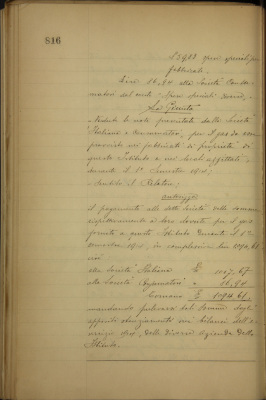 816
fabbricati.
Lire 16,94 alla Società Consu-
matori sul conto "Spese
La Giunta
Vedute le note presentate dalle Società
Italiana e Consumatori, per il gas da esse
provvisto nei fabbricati di proprietà di
questo Istituto e nei locali affittati,
durante il 1° Semestre
Sentito il Relatore;
autorizza
il pagamento alle dette Società delle somme
rispettivamente a loro dovute per il gas
fornito a questo Istituto durante il 1°
semestre in complessive Lire 1094,61
cioè
alla Società Italiana £ 1077,67
alla Società Consumatori " 16,94
Tornano £ 1094,61
mandando prelevare tal somma dagli
appositi stanziamenti nei bilanci dell'e-
sercizio delle diverse aziende dello
Istituto.